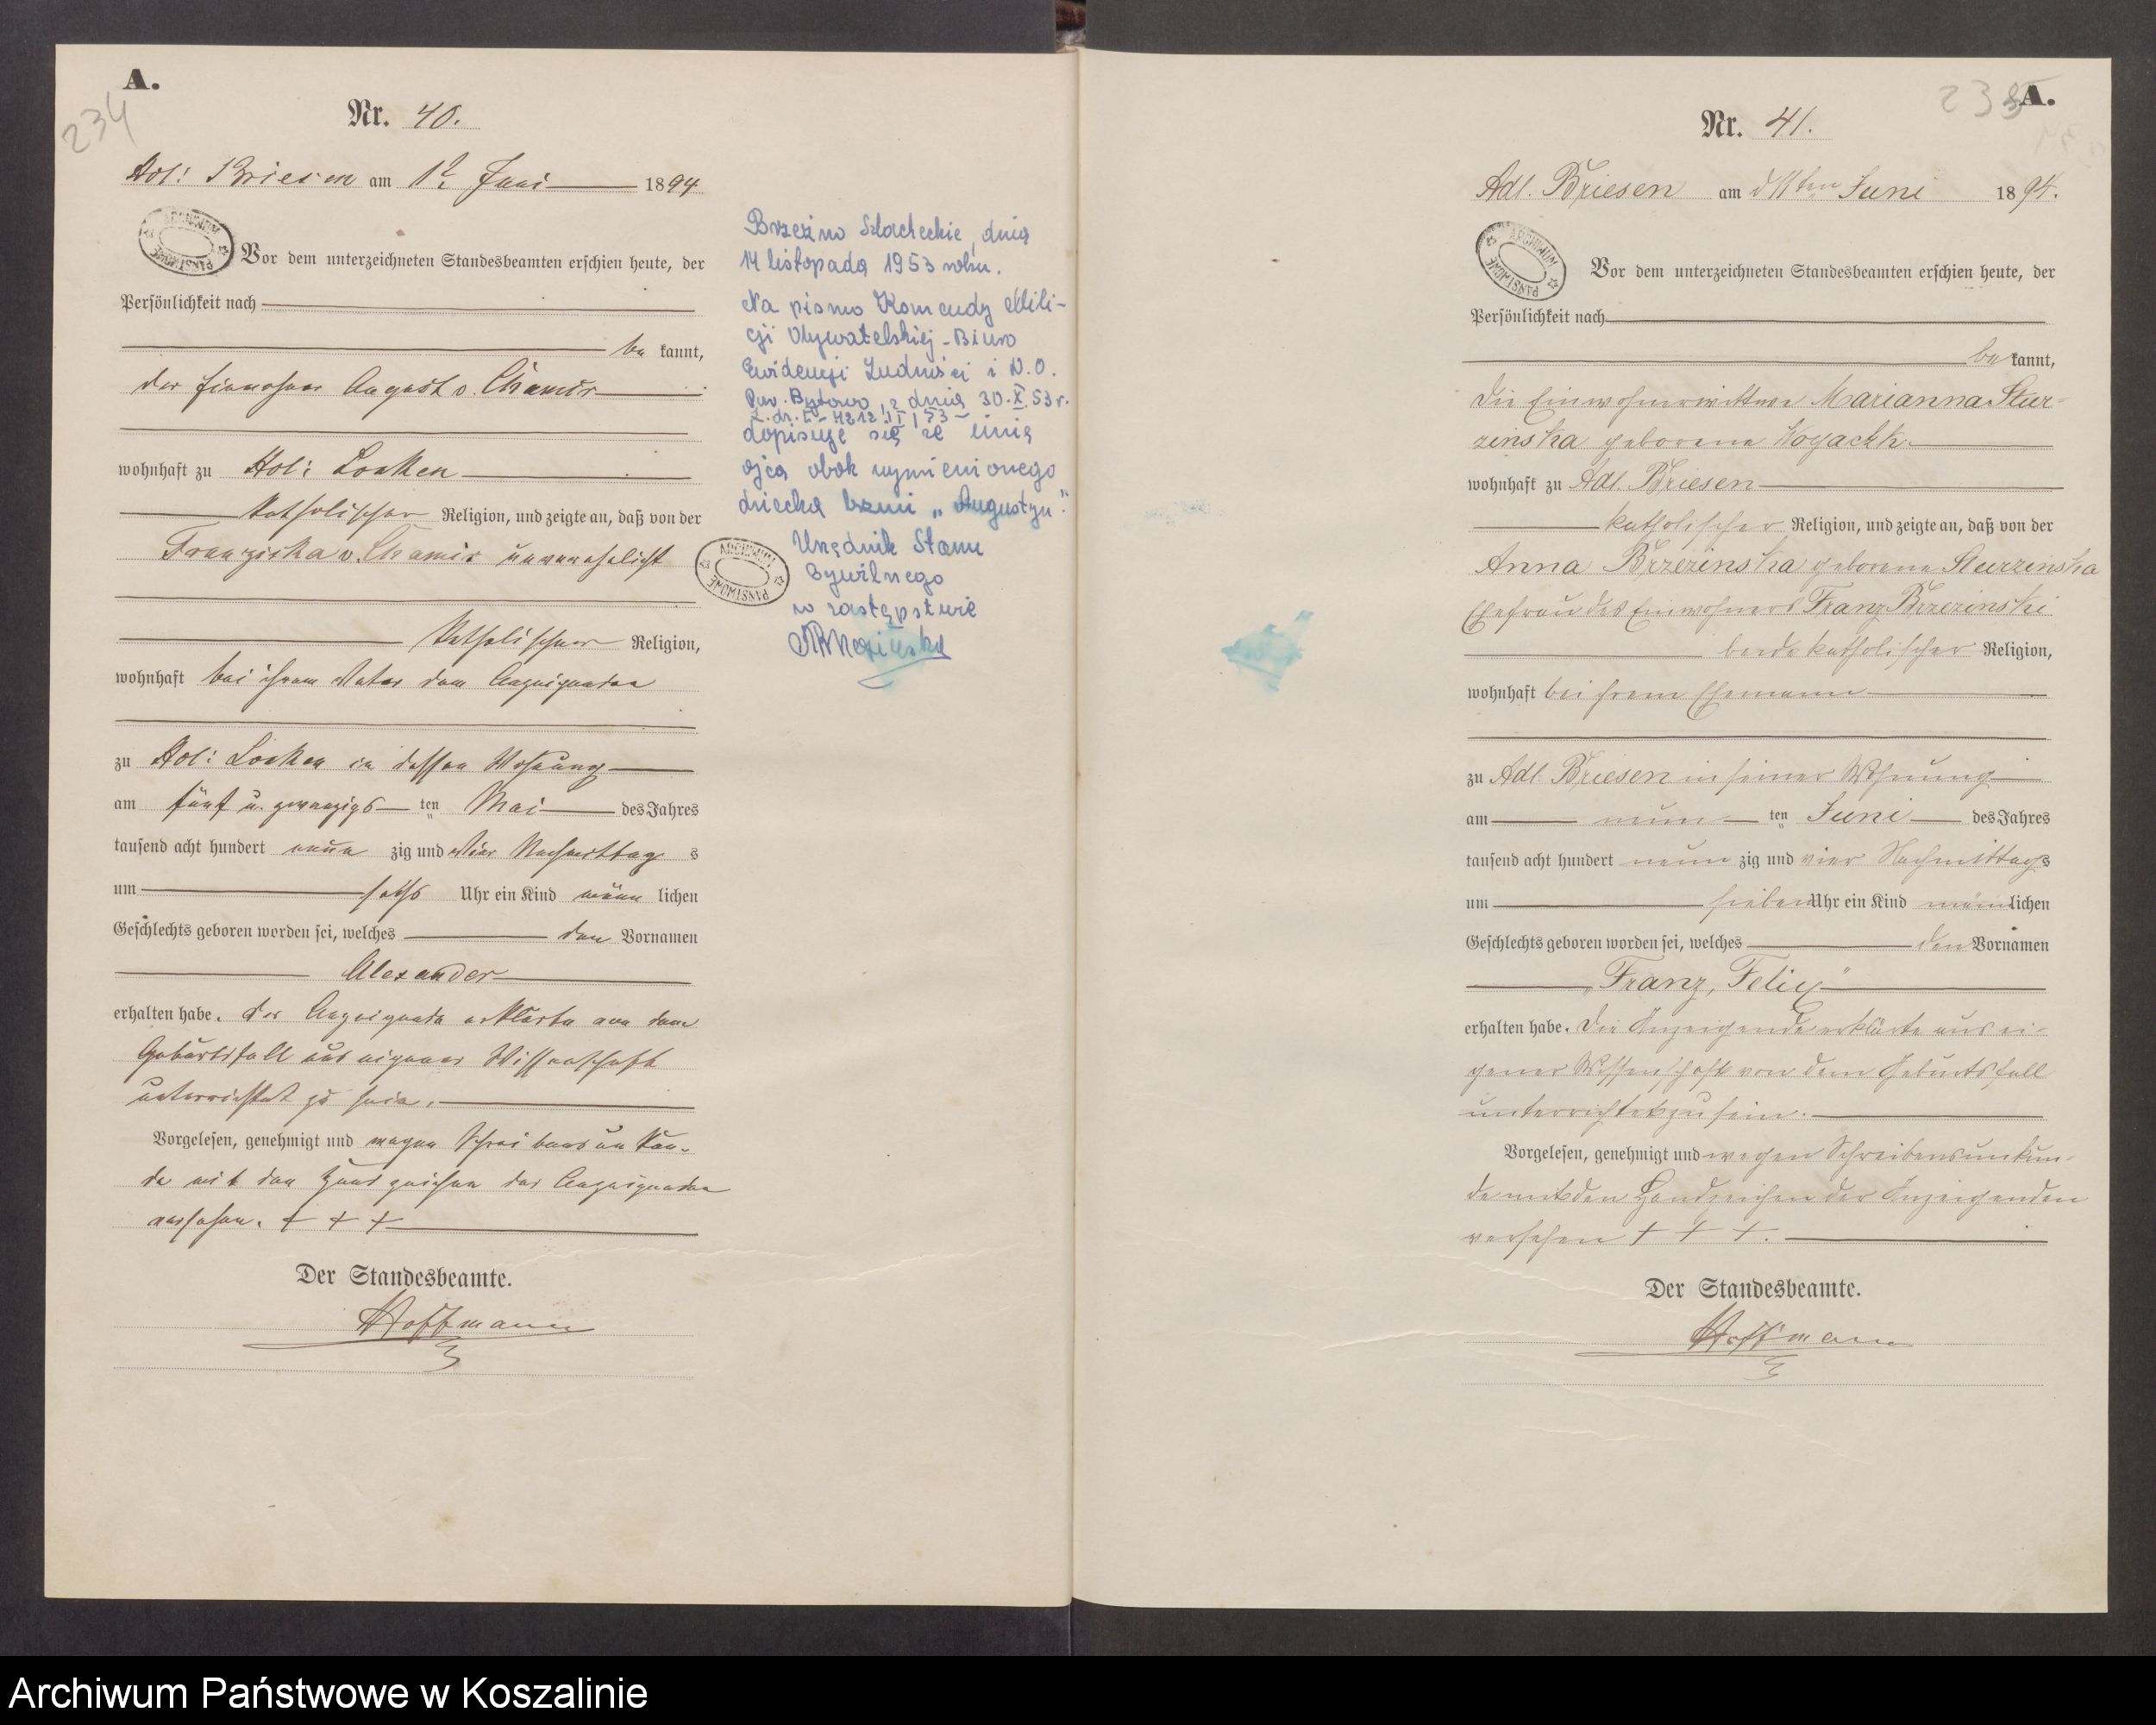 A.
234
Nr. 40.
Adl: Briesen am 1t Juni 1894
ARCHIWUM PAŃSTWOWE
Vor dem unterzeichneten Standesbeamten erschien heute, der
Persönlichkeit nach
be kannt,
der August v. Chamir
wohnhaft zu Adl: Lonken
katholischer Religion, und zeigte an, daß von der
Franziska v. Chamir unverehelicht
katholischer Religion,
wohnhaft bei ihrem Vater dem Anzeigenden
zu Adl: Lonken in dessen Wohnung
am fünf u. zwanzigs ten Mai des Jahres
tausend acht hundert neun zig und vier Nachmittag s
um sechs Uhr ein Kind männ lichen
Geschlechts geboren worden sei, welches den Vornamen
Alexander
erhalten habe. Der Anzeigende erklärte von dem
Geburtsfall aus eigener Wissenschaft
unterrichtet zu sein.
Vorgelesen, genehmigt und wegen Schreibensunkun-
de mit den Handzeichen des Anzeigenden
versehen. + + +
Der Standesbeamte.
Hoffmann
Brzeźno Szlacheckie, dnia
14 listopada 1953 roku.
Na pismo Komendy Mili-
cji Obywatelskiej - Biuro
Ewidencji Ludności i D.O.
Pow. Bytowo, z dnia 30.X.53r.
L.dz. 4212 53
dopisuje się że imię
ojca obok wymienionego
dziecka brzmi „Augustyn".
Urzędnik Stanu
Cywilnego
w zastępstwie
ARCHIWUM PAŃSTWOWE
235
A.
Nr. 41.
Adl. Briesen am d 11ten Juni 1894.
ARCHIWUM PAŃSTWOWE
Vor dem unterzeichneten Standesbeamten erschien heute, der
Persönlichkeit nach
be kannt,
die Einwohnerwittwe Marianna Stur-
zinska geborene
wohnhaft zu Adl. Briesen
katholischer Religion, und zeigte an, daß von der
Anna Brzezinska geborene Sturzinska
Ehefrau des Einwohners Franz Brzezinski
beide katholischer Religion,
wohnhaft bei ihrem Ehemann
zu Adl. Briesen in seiner Wohnung
am neun ten Juni des Jahres
tausend acht hundert neun zig und vier Nachmittags
um sieben Uhr ein Kind männ lichen
Geschlechts geboren worden sei, welches den Vornamen
„Franz, Felix"
erhalten habe. Die Anzeigende erklärte aus ei-
gener Wissenschaft von dem Geburtsfall
unterrichtet zu sein.
Vorgelesen, genehmigt und wegen Schreibensunkun-
de mit den Handzeichen der Anzeigenden
versehen + + +.
Der Standesbeamte.
Hoffmann
Archiwum Państwowe w Koszalinie